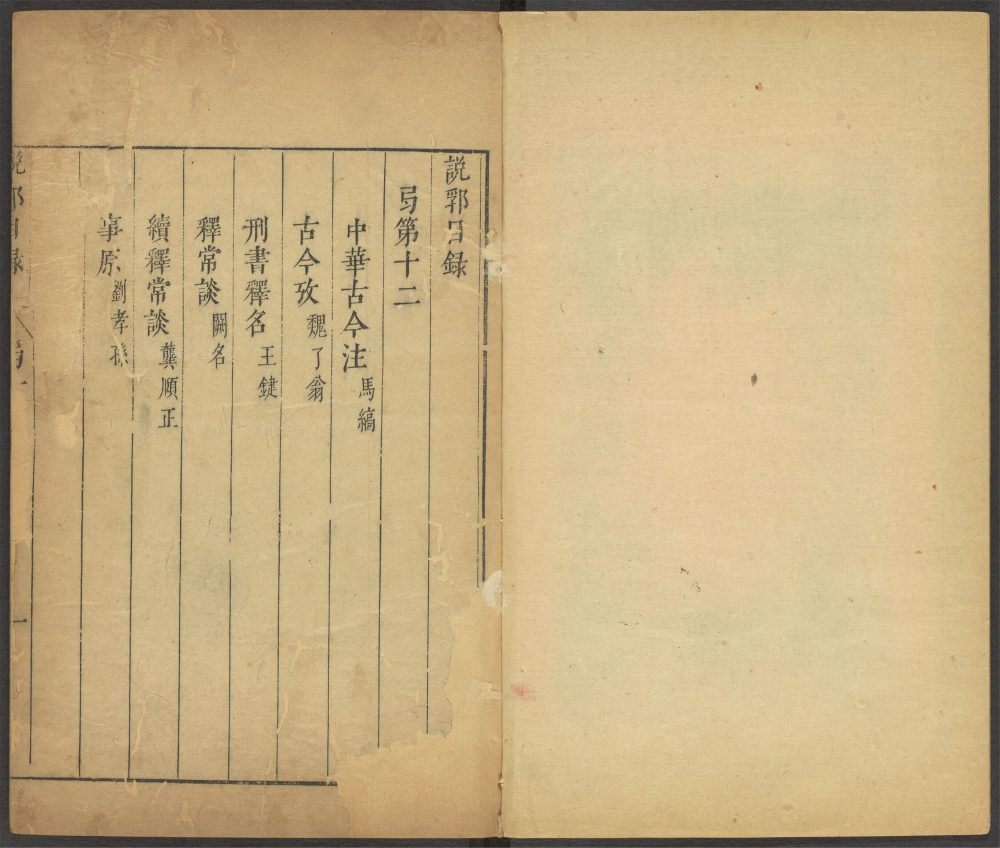 說郛目録
弓第十二
中華古今注 馬縞
古今攷 魏了翁
刑書釋名 王鍵
釋常談 闕名
續釋常談 龔順正
事原 劉孝孫
說郛目録 弓十 一